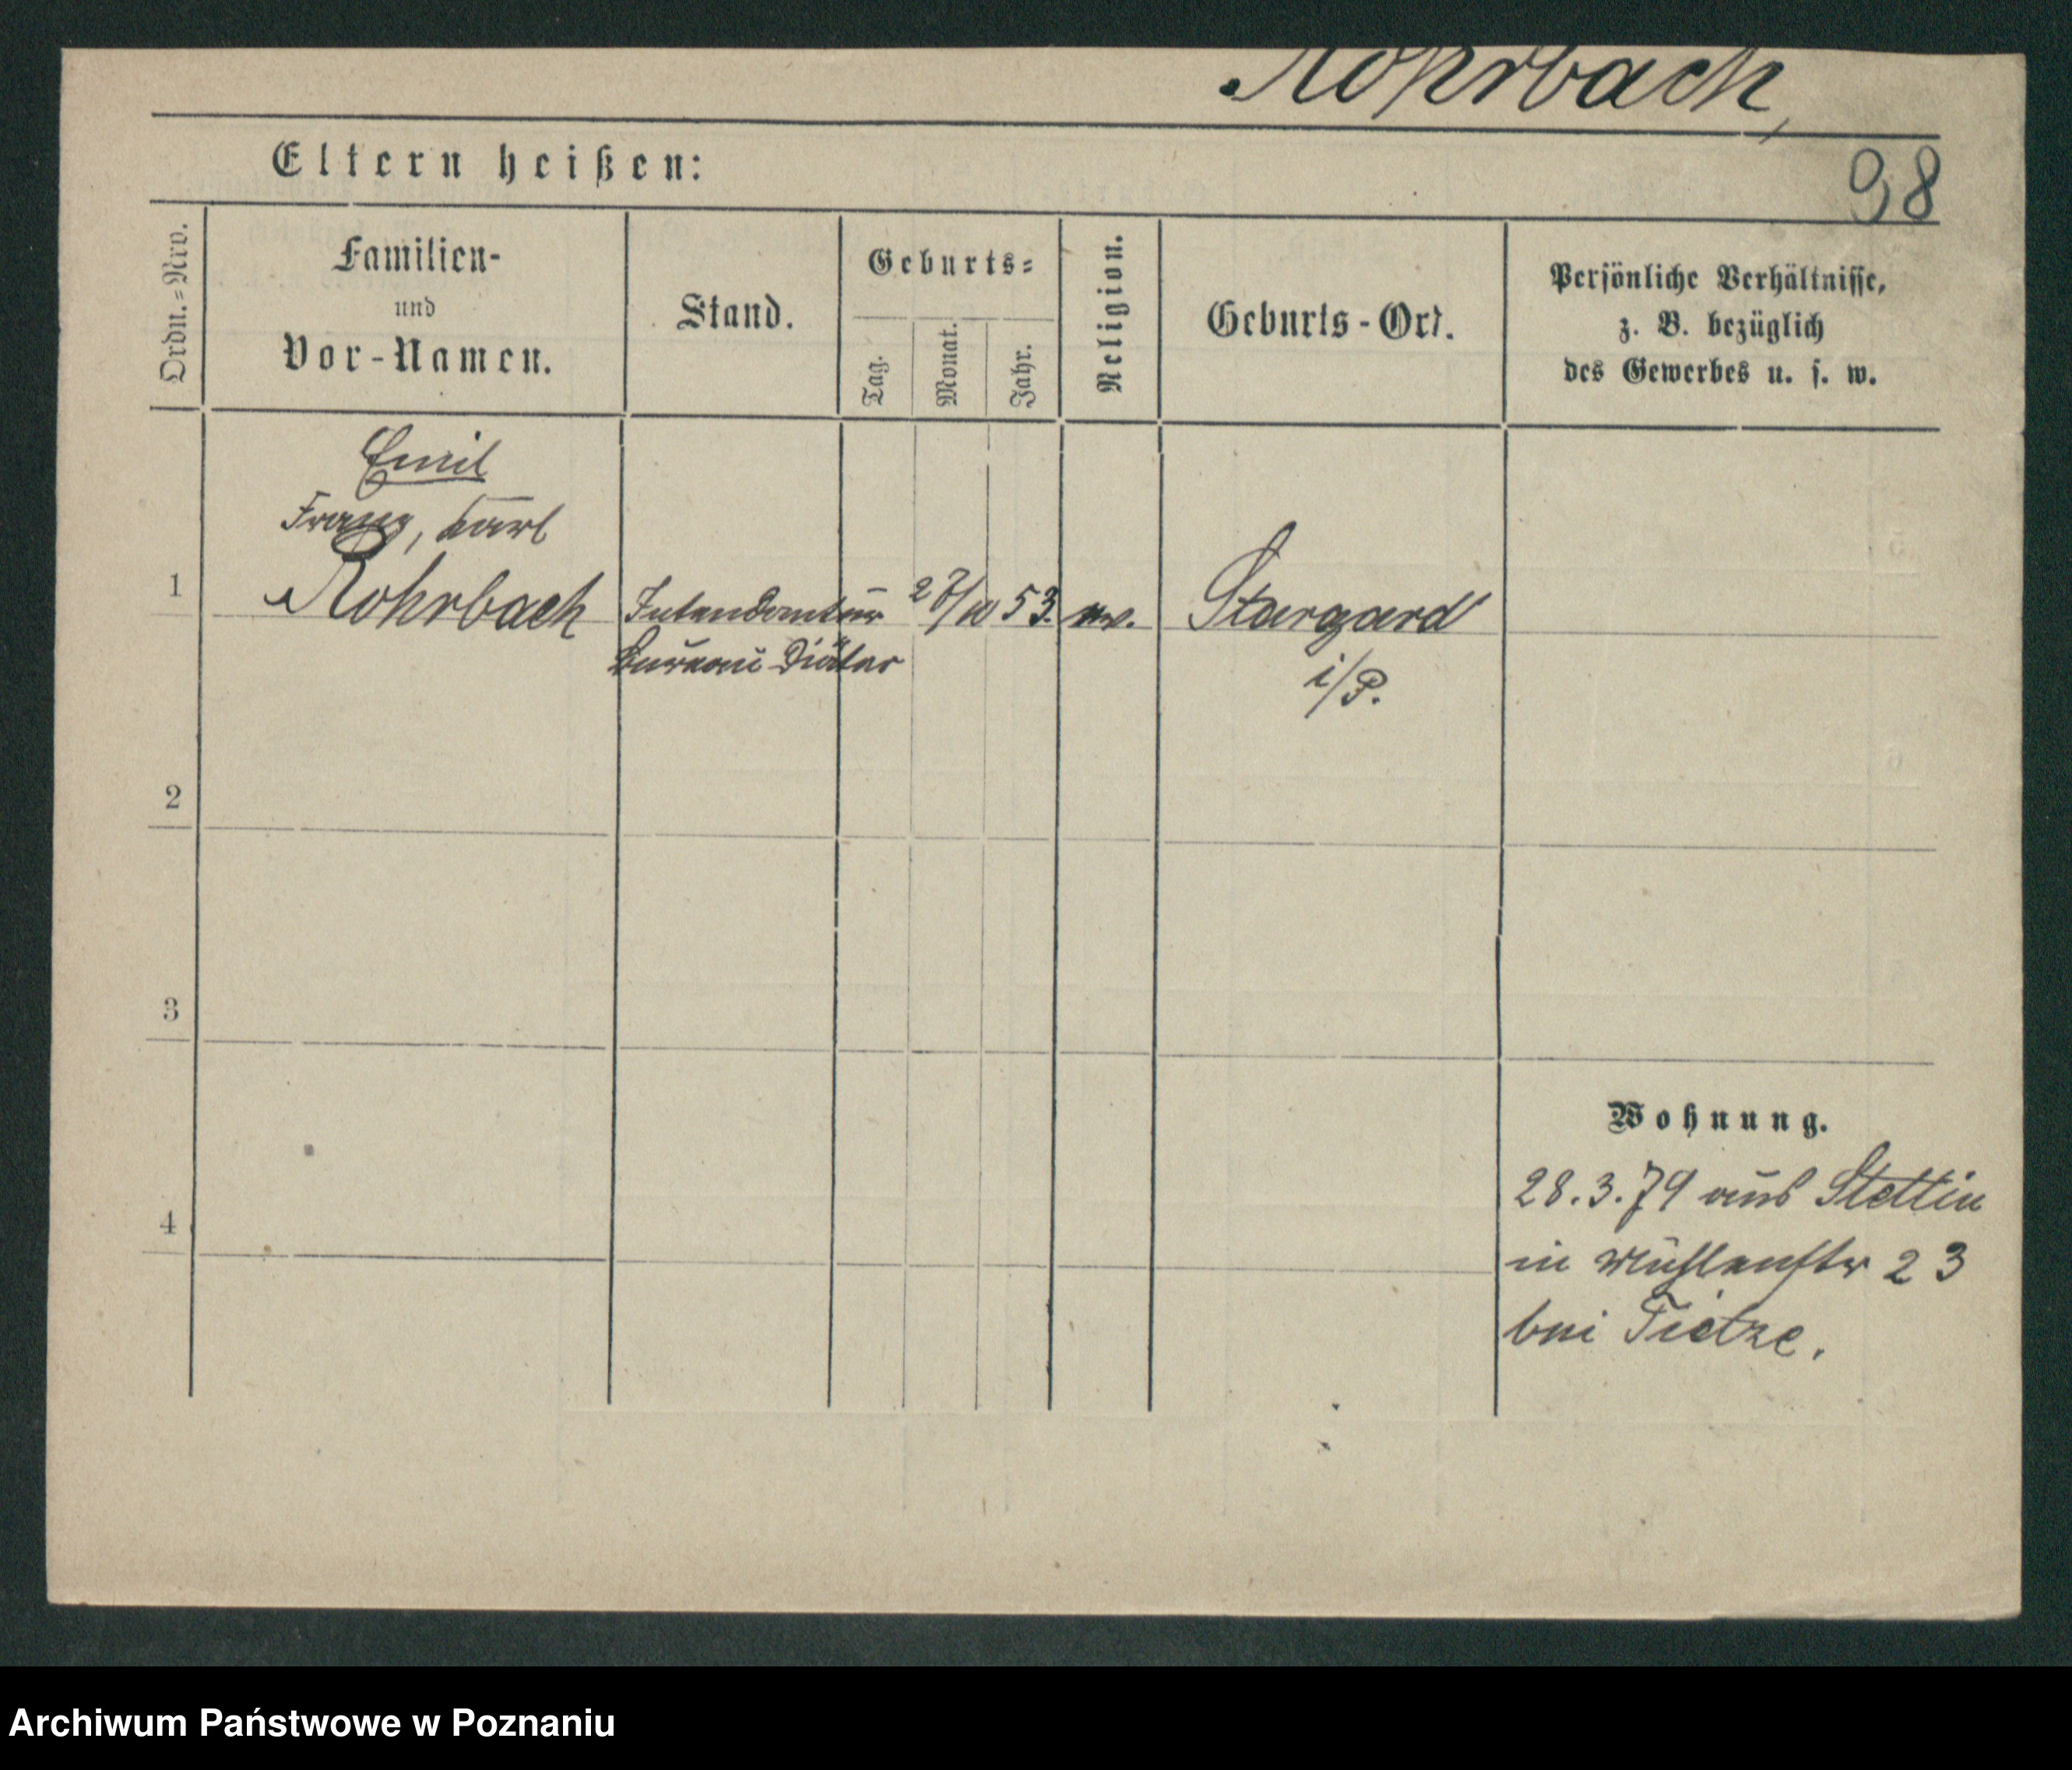 Rohrbach,
Eltern heißen:
98
Ordn.=Nro.
Familien-
und
Vor-Namen.
Stand.
Geburts=
Tag.
Monat.
Jahr.
Religion.
Geburts-Ort.
Persönliche Verhältnisse,
z. B. bezüglich
des Gewerbes u. s. w.
Emil
Franz, Karl
1 Rohrbach Intendantur 27/10 53. ev. Stargard
Bureau Diätar i/P.
2
3
Wohnung.
28.3.79 aus Stettin
4
in Mühlenstr 23
bei Tietze.
Archiwum Państwowe w Poznaniu